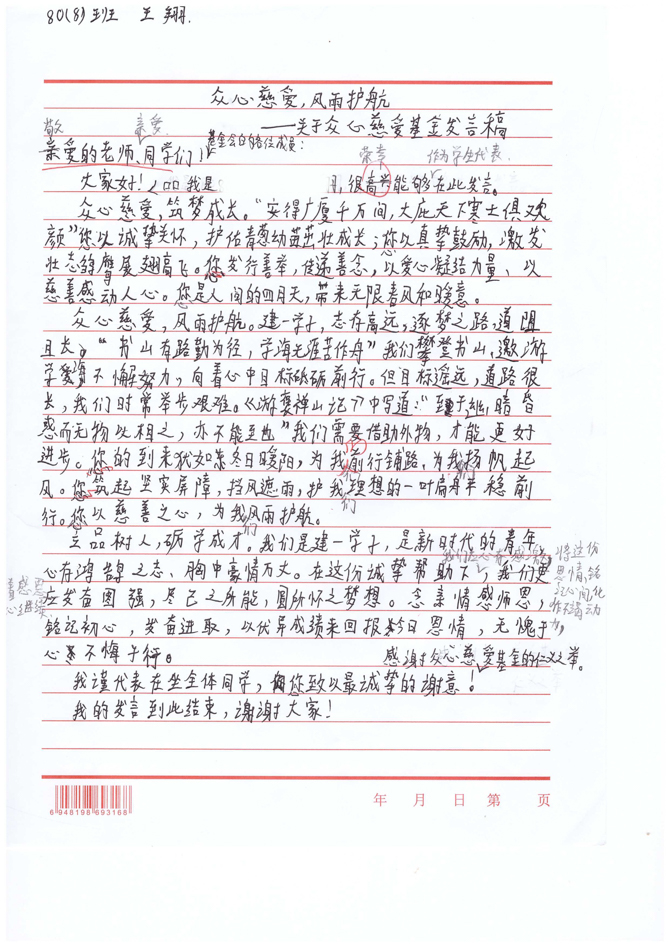 80(8)班 王翔
众心慈爱,风雨护航
——关于众心慈爱基金发言稿
敬 亲爱
亲爱的老师、同学们!
基金会的各位成员:
荣幸 作为学生代表
大家好! 我是 ,很高兴能够在此发言。
众心慈爱,筑梦成长。“安得广厦千万间,大庇天下寒士俱欢
颜”您以诚挚关怀,护佑青葱幼苗茁壮成长;您以真挚鼓励,激发
壮志鹤臂展翅高飞。您发行善举,传递善念,以爱心凝结力量、以
慈善感动人心。您是人间的四月天,带来无限春风和暖意。
众心慈爱,风雨护航。建一学子,志存高远,逐梦之路,道阻
且长。“书山有路勤为径,学海无涯苦作舟”我们攀登书山,遨游
学海不懈努力,向着心中目标砥砺前行。但目标遥远,道路很
长,我们时常举步艰难。《游褒禅山记》中写道:“至于幽暗昏
惑而无物以相之,亦不能至也”我们需要借助外物,才能更好
进步。您的到来犹如冬日暖阳,为我前行铺路,为我扬帆起
们
风。您筑起坚实屏障,挡风遮雨,护我理想的一叶扁舟平稳前
们
行。您以慈善之心,为我风雨护航。
们
立品树人,砺学成才。我们是建一学子,是新时代的青年,
心有鸿鹄之志、胸中豪情万丈。在这份诚挚帮助下,我们更
应发奋图强,尽己之所能,圆所怀之梦想。念亲情感师恩,
铭记初心,发奋进取,以优异成绩来回报今日恩情,无愧于
心不悔于行。
将这份
恩情铭
记心间,化
作不竭动
力,
感谢众心慈爱基金的仁义之举。
我谨代表在坐全体同学,向您致以最诚挚的谢意!
我的发言到此结束,谢谢大家!
6948198693168
年 月 日 第 页